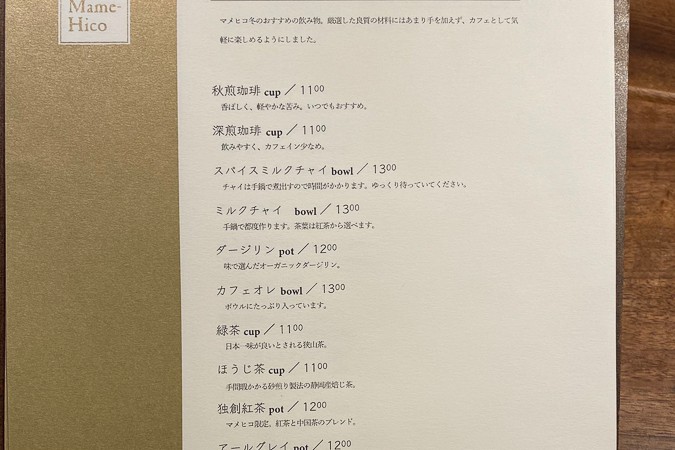 Mame-
Hico
マメヒコ冬のおすすめの飲み物。厳選した良質の材料にはあまり手を加えず、カフェとして気
軽に楽しめるようにしました。
秋煎珈琲 cup ／ 1100
香ばしく、軽やかな苦み。いつでもおすすめ。
深煎珈琲 cup ／ 1100
飲みやすく、カフェイン少なめ。
スパイスミルクチャイ bowl ／ 1300
チャイは手鍋で煮出すので時間がかかります。ゆっくり待っていてください。
ミルクチャイ bowl ／ 1300
手鍋で都度作ります。茶葉は紅茶から選べます。
ダージリン pot ／ 1200
味で選んだオーガニックダージリン。
カフェオレ bowl ／ 1300
ボウルにたっぷり入っています。
緑茶 cup ／ 1100
日本一味が良いとされる狭山茶。
ほうじ茶 cup ／ 1100
手間暇かかる砂煎り製法の静岡産焙じ茶。
独創紅茶 pot ／ 1200
マメヒコ限定。紅茶と中国茶のブレンド。
アールグレイ pot ／ 1200